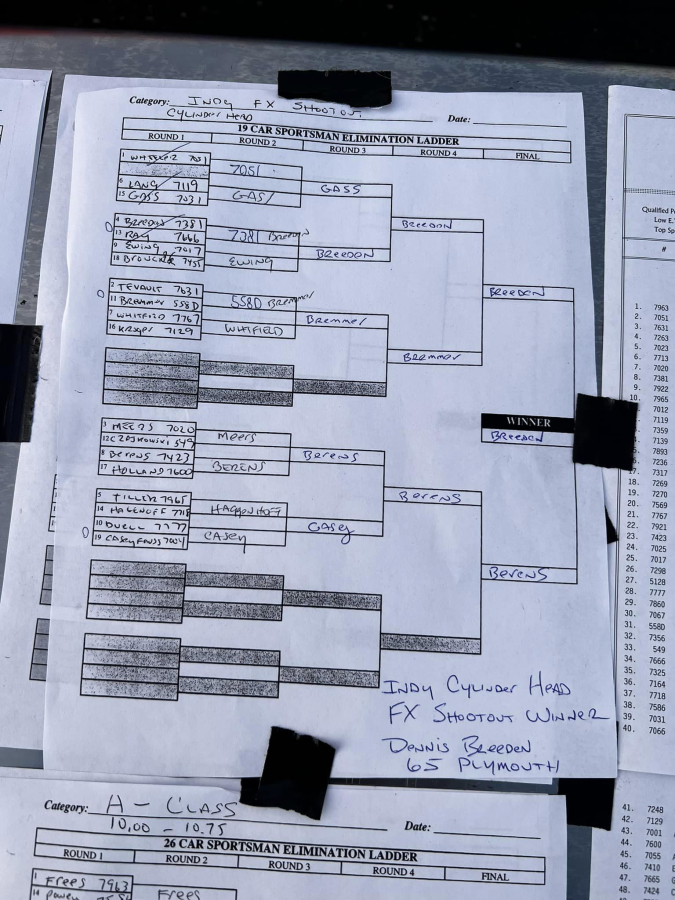 Category: INDY FX SHOOTOUT
CYLINDER HEAD
Date:
19 CAR SPORTSMAN ELIMINATION LADDER
ROUND 1 ROUND 2 ROUND 3 ROUND 4 FINAL
1 7051
6 LANG 7119
15 GASS 7031
7051
GASS
GASS
4 BREEDON 7381
13 RAY 7666
9 EWING 7017
18 7455
7381 Breedon
EWING
BREEDON
BREEDON
2 TEVAULT 7631
11 Bremmer 558D
7 WHITFIELD 7767
16 7129
558D Bremmer
WHITFIELD
Bremmer
Bremmer
BREEDON
3 MEERS 7020
12 549
8 BERENS 7423
17 HOLLAND 7600
Meers
BERENS
Berens
5 TILLER 7965
14 HAGENOFF 7718
10 DUELL 7777
19 CASEY
HAGGENHOFF
CASEY
Casey
Berens
Berens
WINNER
BREEDON
INDY CYLINDER HEAD
FX SHOOTOUT WINNER
DENNIS BREEDEN
65 PLYMOUTH
Category: A - CLASS
10.00 - 10.75
Date:
26 CAR SPORTSMAN ELIMINATION LADDER
ROUND 1 ROUND 2 ROUND 3 ROUND 4 FINAL
1 FREES 7963
FREES
Qualified
Low E.
Top Sp
#
1. 7963
2. 7051
3. 7631
4. 7263
5. 7023
6. 7713
7. 7020
8. 7381
9. 7922
10. 7965
7012
7119
7359
7139
7893
7236
7317
18. 7269
19. 7270
20. 7569
21. 7767
22. 7921
23. 7423
24. 7025
25. 7017
26. 7298
27. 5128
28. 7777
29. 7860
30. 7067
31. 558D
32. 7356
33. 549
34. 7666
35. 7325
36. 7164
37. 7718
38. 7586
39. 7031
40. 7066
41. 7248
42. 7129
43. 7001
44. 7600
45. 7055
46. 7410
47. 7665
48. 7424